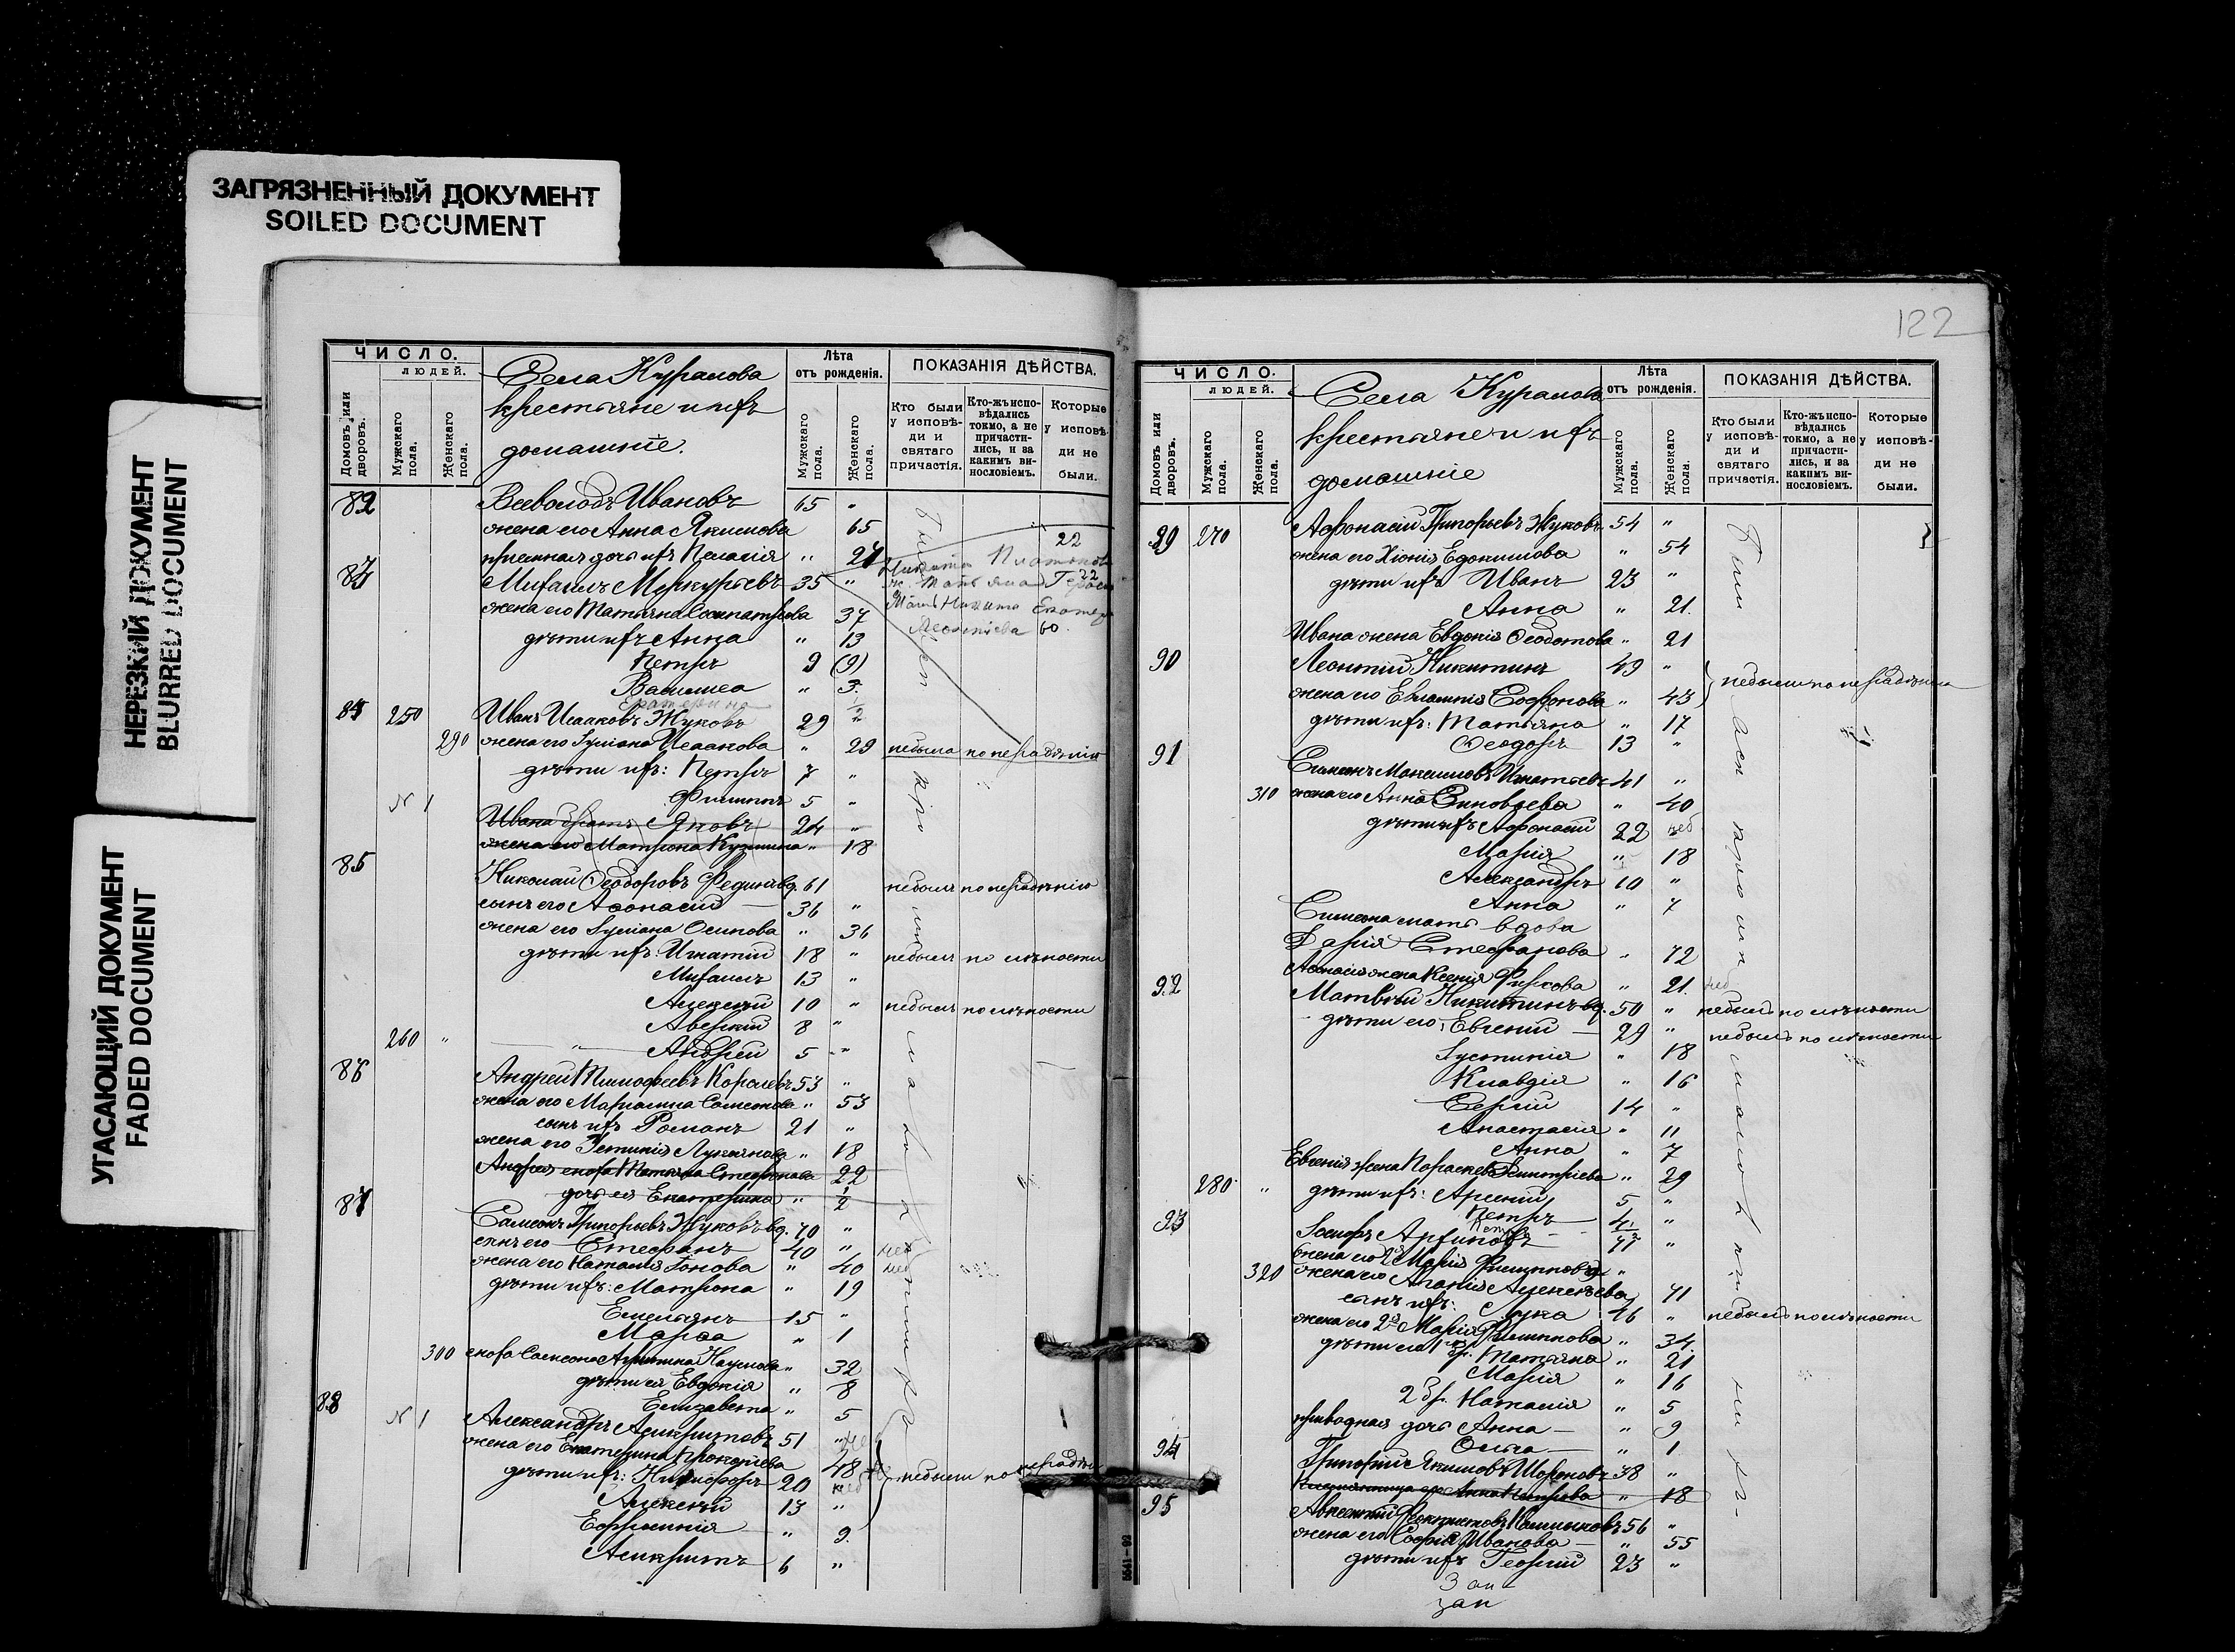 ЗАГРЯЗНЕННЫЙ ДОКУМЕНТ
SOILED DOCUMENT
НЕРЕЗКИЙ ДОКУМЕНТ
BLURRED DOCUMENT
УГАСАЮЩИЙ ДОКУМЕНТ
FADED DOCUMENT
ЧИСЛО.
ЛЮДЕЙ.
Домовъ или дворовъ.
Мужскаго пола.
Женскаго пола.
Села Куралова
крестьяне и ихъ
домашніе.
Лѣта
отъ рожденія.
Мужскаго пола.
Женскаго пола.
ПОКАЗАНІЯ ДѢЙСТВА.
Кто были у исповѣди и святаго причастія.
Кто-жъ исповѣдались токмо, а не причастились, и за какимъ винословіемъ.
Которые у исповѣди не были.
Всеволодъ Ивановъ 65 "
жена его Анна Якимова 65
пріемная дочь ихъ Пелагія " 21
Михаилъ Меркурьевъ 35 "
жена его Татьяна Сосипатрова 37
дѣти ихъ Анна " 13
Петръ 9 (9)
Василиса " 3
Екатерина 1/2
250 Иванъ Исааковъ Жуковъ 29
290 жена его Іуліана Исаакова " 29 не была по нерадѣнію
дѣти ихъ: Петръ 7 "
N 1 Филиппъ 5 "
Ивана братъ Яковъ 24 "
жена его Матрона Кузмина " 18
Николай Ѳеодоровъ Фединъ вд. 61 не былъ по нерадѣнію
сынъ его Аѳонасій 36 "
жена его Іуліана Осипова " 36
дѣти ихъ: Игнатій 18 " не былъ по лѣности
Михаилъ 13 "
Алексѣй 10 " не былъ по лѣности
Аверкій 8 "
260 " Андрей 5 "
Андрей Тимофеевъ Королевъ 53 "
жена его Маріамна Самсонова " 53
сынъ ихъ Романъ 21 "
жена его Устинія Лукіанова " 18
Андрея сноха Татьяна Стефанова 22
дочь ея Екатерина " 1/2
Самсонъ Григорьевъ Жуковъ вд. 70 "
сынъ его Стефанъ 40 "
жена его Наталія Іонова " 40
дѣти ихъ: Матрона " 19
Емельянъ 15 "
Марѳа " 1
300 сноха Самсона Наумова " 32
дѣти ея Евдокія " 8
Елизавета " 5
88 N 1 Александръ Асикритовъ 51 "
жена его Екатерина Прокопіева 48
дѣти ихъ: Никифоръ 20
не были по нерадѣнію
Алексѣй 13 "
Евфимія " 9
Асикритъ 6 "
122
ЧИСЛО.
ЛЮДЕЙ.
Домовъ или дворовъ.
Мужскаго пола.
Женскаго пола.
Села Куралова
крестьяне и ихъ
домашніе
Лѣта
отъ рожденія.
Мужскаго пола.
Женскаго пола.
ПОКАЗАНІЯ ДѢЙСТВА.
Кто были у исповѣди и святаго причастія.
Кто-жъ исповѣдались токмо, а не причастились, и за какимъ винословіемъ.
Которые у исповѣди не были.
89 270 Афонасій Григорьевъ Жуковъ 54 "
жена его Хіонія Евдокимова " 54
дѣти ихъ Иванъ 23 "
Анна " 21.
Ивана жена Евдокія Ѳеодотова " 21
90 Леонтій Никитинъ 49 "
не были по нерадѣнію
жена его Евлампія Софронова " 43
дѣти ихъ: Татьяна " 17
Ѳеодоръ 13 "
91 Симеонъ Максимовъ Игнатьевъ 41 "
310 жена его Анна Зиновьева " 40
дѣти ихъ Афонасій 22
Марія " 18
Александръ 10 "
Анна " 7
Симеона мать вдова
Дарія Стефанова " 72
Афонасія жена Ксенія Фирсова " 21.
92 Матвѣй Никитинъ вд. 50 " не былъ по лѣности
дѣти его, Евгеній 29 " не былъ по лѣности
Іустинія " 18
Клавдія " 16
Сергій 14 "
Анастасія " 11
Анна " 7
Евгенія жена Параскева Димитріева " 29
280 " дѣти ихъ: Арсеній 5 "
Петръ
93 Іосифъ
жена его 2я Марія Филиппова
320 жена его Агапія Алексѣева 71
сынъ ихъ: Лука 46 " не былъ по лѣности
жена его 2я Марія Филиппова " 34
дѣти его 1 бр. Татьяна " 21
Марія " 16
2 бр. Наталія " 5
приводная дочь Анна " 9
Ольга " 1
94 Григорій Якимовъ Шороновъ 38 "
Анна Петрова " 18
95 Авксентій Ѳеоктистовъ Калинковъ 56 "
жена его Софія Иванова " 55
дѣти ихъ Георгій 23 "
5561—92